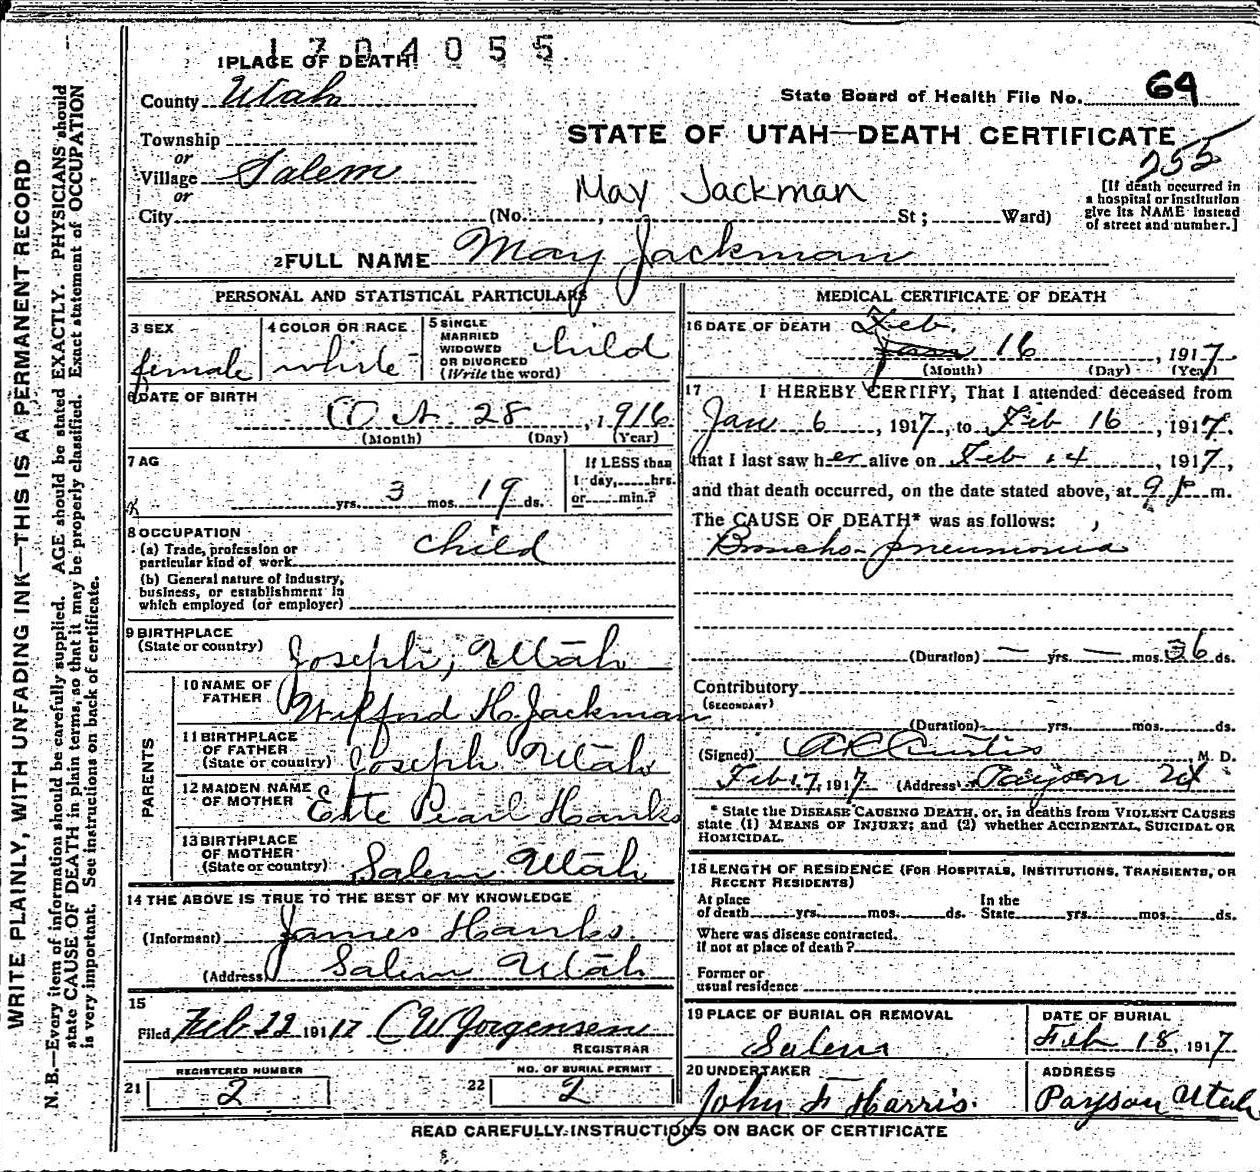 1704055
1 PLACE OF DEATH
County Utah
State Board of Health File No. 64
Township
or
Village Salem
or
STATE OF UTAH—DEATH CERTIFICATE
255
May Jackman
[If death occurred in
a hospital or institution
give its NAME instead
of street and number.]
City (No. , St; Ward)
2 FULL NAME May Jackman
PERSONAL AND STATISTICAL PARTICULARS
3 SEX
female
4 COLOR OR RACE
white
5 SINGLE
MARRIED
WIDOWED
OR DIVORCED
(Write the word)
child
6 DATE OF BIRTH
Oct. 28, 1916
(Month) (Day) (Year)
7 AG
yrs. 3 mos. 19 ds.
If LESS than
1 day, hrs.
or min.?
8 OCCUPATION
(a) Trade, profession or
particular kind of work
child
(b) General nature of industry,
business, or establishment in
which employed (or employer)
9 BIRTHPLACE
(State or country)
Joseph, Utah
PARENTS
10 NAME OF
FATHER
Wilford H. Jackman
11 BIRTHPLACE
OF FATHER
(State or country)
Joseph Utah
12 MAIDEN NAME
OF MOTHER
Pearl Hanks
13 BIRTHPLACE
OF MOTHER
(State or country)
Salem Utah
14 THE ABOVE IS TRUE TO THE BEST OF MY KNOWLEDGE
(Informant) James Hanks
(Address) Salem Utah
15
Filed Feb 22 191 17 CW Jorgensen
REGISTRAR
REGISTERED NUMBER
21 2
NO. OF BURIAL PERMIT
22 2
MEDICAL CERTIFICATE OF DEATH
16 DATE OF DEATH Feb.
Jan 16, 1917
(Month) (Day) (Year)
17 I HEREBY CERTIFY, That I attended deceased from
Jan 6, 1917, to Feb 16, 1917,
that I last saw her alive on Feb 14, 1917,
and that death occurred, on the date stated above, at 9 p m.
The CAUSE OF DEATH* was as follows:
Broncho-pneumonia
(Duration) — yrs. — mos. 36 ds.
Contributory
(SECONDARY)
(Duration) yrs. mos. ds.
(Signed) Curtis M. D.
Feb 17, 1917 (Address) Payson Ut
* State the DISEASE CAUSING DEATH, or, in deaths from VIOLENT CAUSES
state (1) MEANS OF INJURY; and (2) whether ACCIDENTAL, SUICIDAL OR
HOMICIDAL.
18 LENGTH OF RESIDENCE (FOR HOSPITALS, INSTITUTIONS, TRANSIENTS, OR
RECENT RESIDENTS)
At place
of death yrs. mos. ds.
In the
State yrs. mos. ds.
Where was disease contracted.
If not at place of death?
Former or
usual residence
19 PLACE OF BURIAL OR REMOVAL
Salem
DATE OF BURIAL
Feb 18, 1917
20 UNDERTAKER
John F Harris.
ADDRESS
Payson Utah
READ CAREFULLY INSTRUCTIONS ON BACK OF CERTIFICATE
WRITE PLAINLY, WITH UNFADING INK—THIS IS A PERMANENT RECORD
N. B.—Every item of information should be carefully supplied. AGE should be stated EXACTLY. PHYSICIANS should
state CAUSE OF DEATH in plain terms, so that it may be properly classified. Exact statement of OCCUPATION
is very important. See instructions on back of certificate.